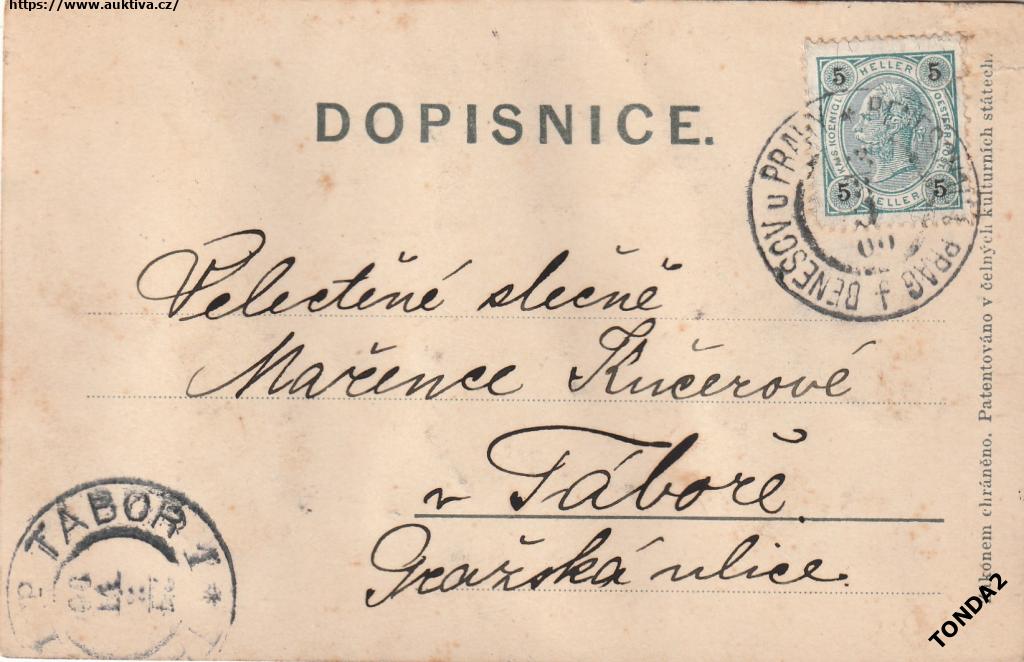 https://www.auktiva.cz/
DOPISNICE.
5 HELLER 5
KAIS. KOENIGL. OESTERR. POST
5 HELLER 5
BENEŠOV u PRAHY
BENESCHAU PRAG
00
Velectěné slečně
Mařence Kučerové
v Táboře.
Pražská ulice.
TÁBOR 1
zákonem chráněno. Patentováno v čelných kulturních státech.
TONDA2